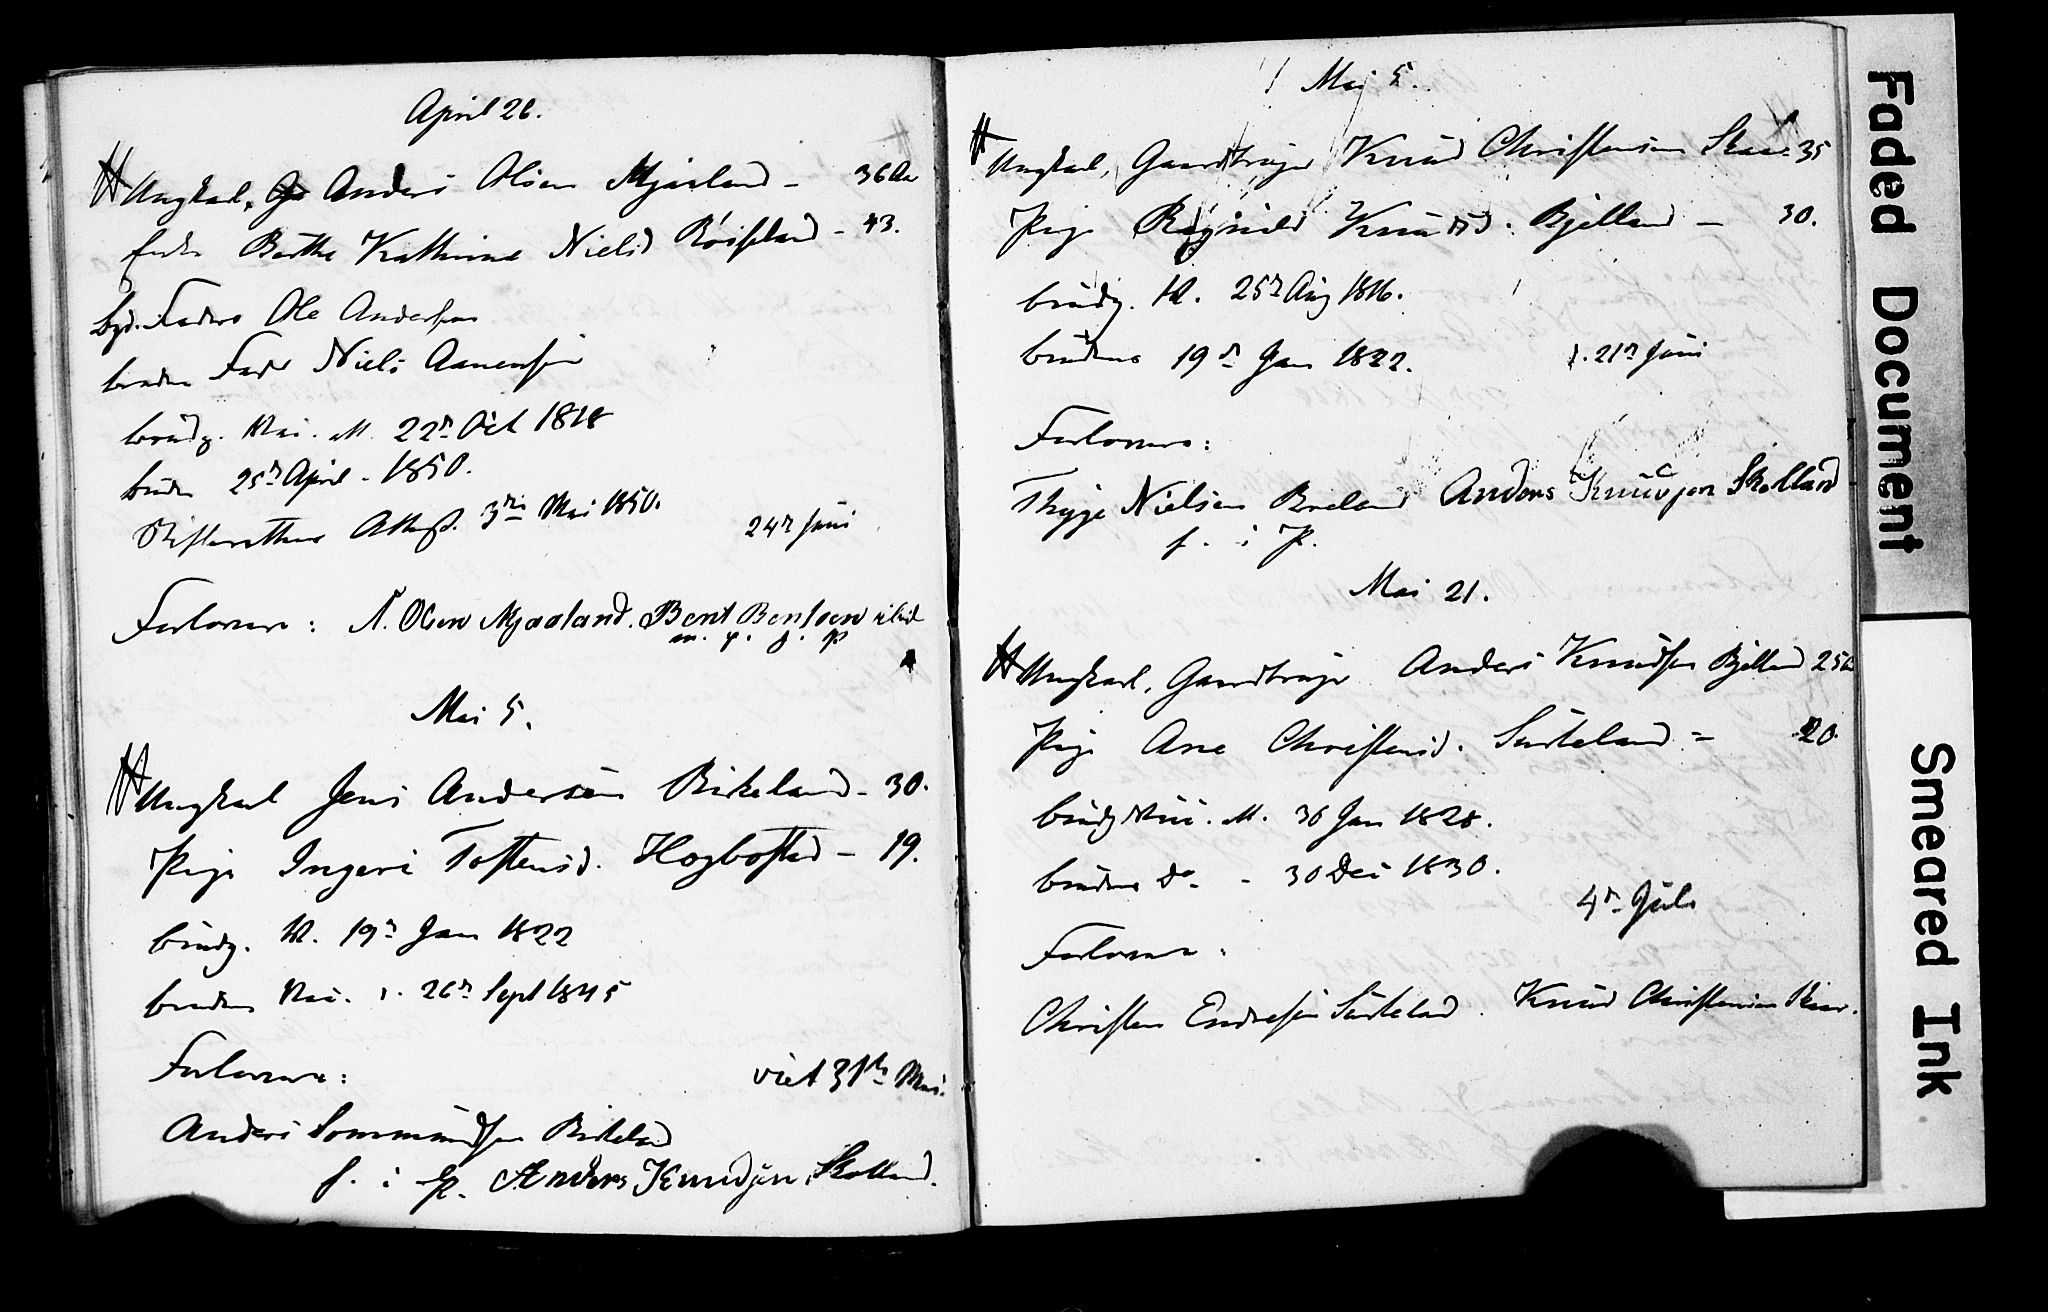 April 26.
Ungkarl, Anders Olsen Mjaaland - 36 Aar
Enke Berthe Kathrine Nielsd Röisland - 43.
bgd. Faders Ole Andersen
bruden Fader Niels Aanensen
brudg. Vac. M. 22n Oct 1818
bruden 25n April - 1850.
Skifterettens Attest. 3die Mai 1850.
24n Juni
Forlovere : A. Olsen Mjaaland. Bent Bentsen
m. p. f. P
Mai 5.
Ungkarl Jens Andersen Birkeland - 30.
Pige Ingeri Tostensd. Hogbostad - 19.
brudg. Kl. 19n Jan 1822
bruden Vac. 26n Sept 1845
Forlovere :
viet 31te Mai.
Anders Sommundsen Birkeland
f. i P. Anders Knudsen Skolland.
Mai 5.
Ungkarl, Gaardbruger Knud Christensen Skaar 35
Pige Ragnild Knudsd. Bjelland - 30.
brudg. Kl. 25n Aug 1816.
brudens 19n Jan 1822.
d. 21n Juni
Forlovere :
Thyge Nielsen Breland Anders Knudsen Skolland
f. i P.
Mai 21.
Ungkarl, Gaardbruger Anders Knudsen Bjelland 25
Pige Ane Christensd. Surteland = 20.
brudg Vac. M. 30 Jan 1828.
brudens do. - 30 Dec 1830.
4n Juli
Forlovere :
Christen Endresen Surteland. Knud Christensen Skaar.
Faded Document
Smeared Ink